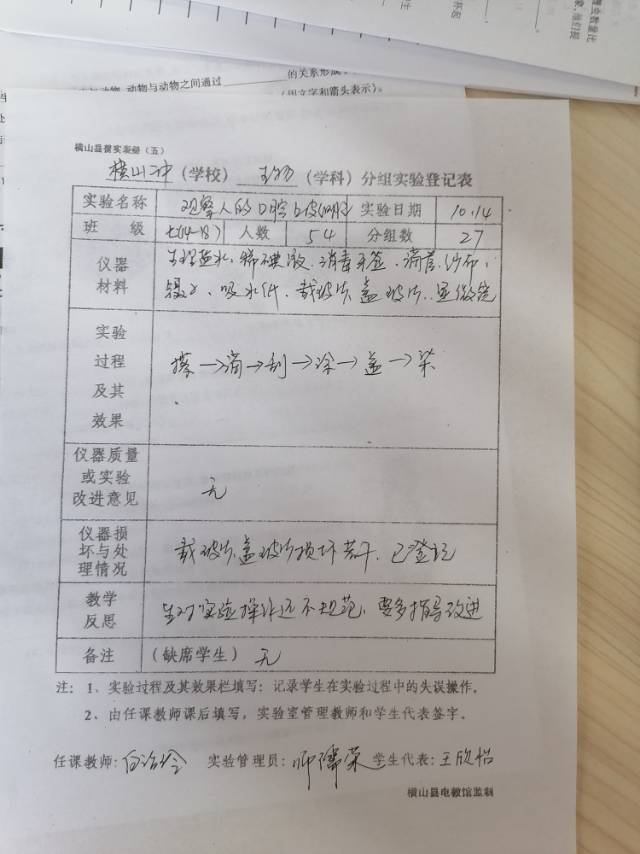 覆虫数量比
的关系形成
动物、动物与动物之间通过
(用文字和箭头表示)。
横山县普实表册（五）
横山冲（学校） 生物 （学科）分组实验登记表
实验名称 观察人的口腔上皮细胞 实验日期 10.14
班 级 七(14-18) 人数 54 分组数 27
仪器材料 生理盐水、稀碘液、消毒牙签、滴管、纱布、
镊子、吸水纸、载玻片、盖玻片、显微镜
实验
过程 擦→滴→刮→涂→盖→染
及其
效果
仪器质量
或实验
改进意见 无
仪器损
坏与处 载玻片、盖玻片损坏若干，已登记
理情况
教学
反思 生对实验操作还不规范，要多指导改进
备注 （缺席学生） 无
注： 1、实验过程及其效果栏填写：记录学生在实验过程中的失误操作。
2、由任课教师课后填写，实验室管理教师和学生代表签字。
任课教师： 实验管理员： 学生代表：王欣怡
横山县电教馆监制